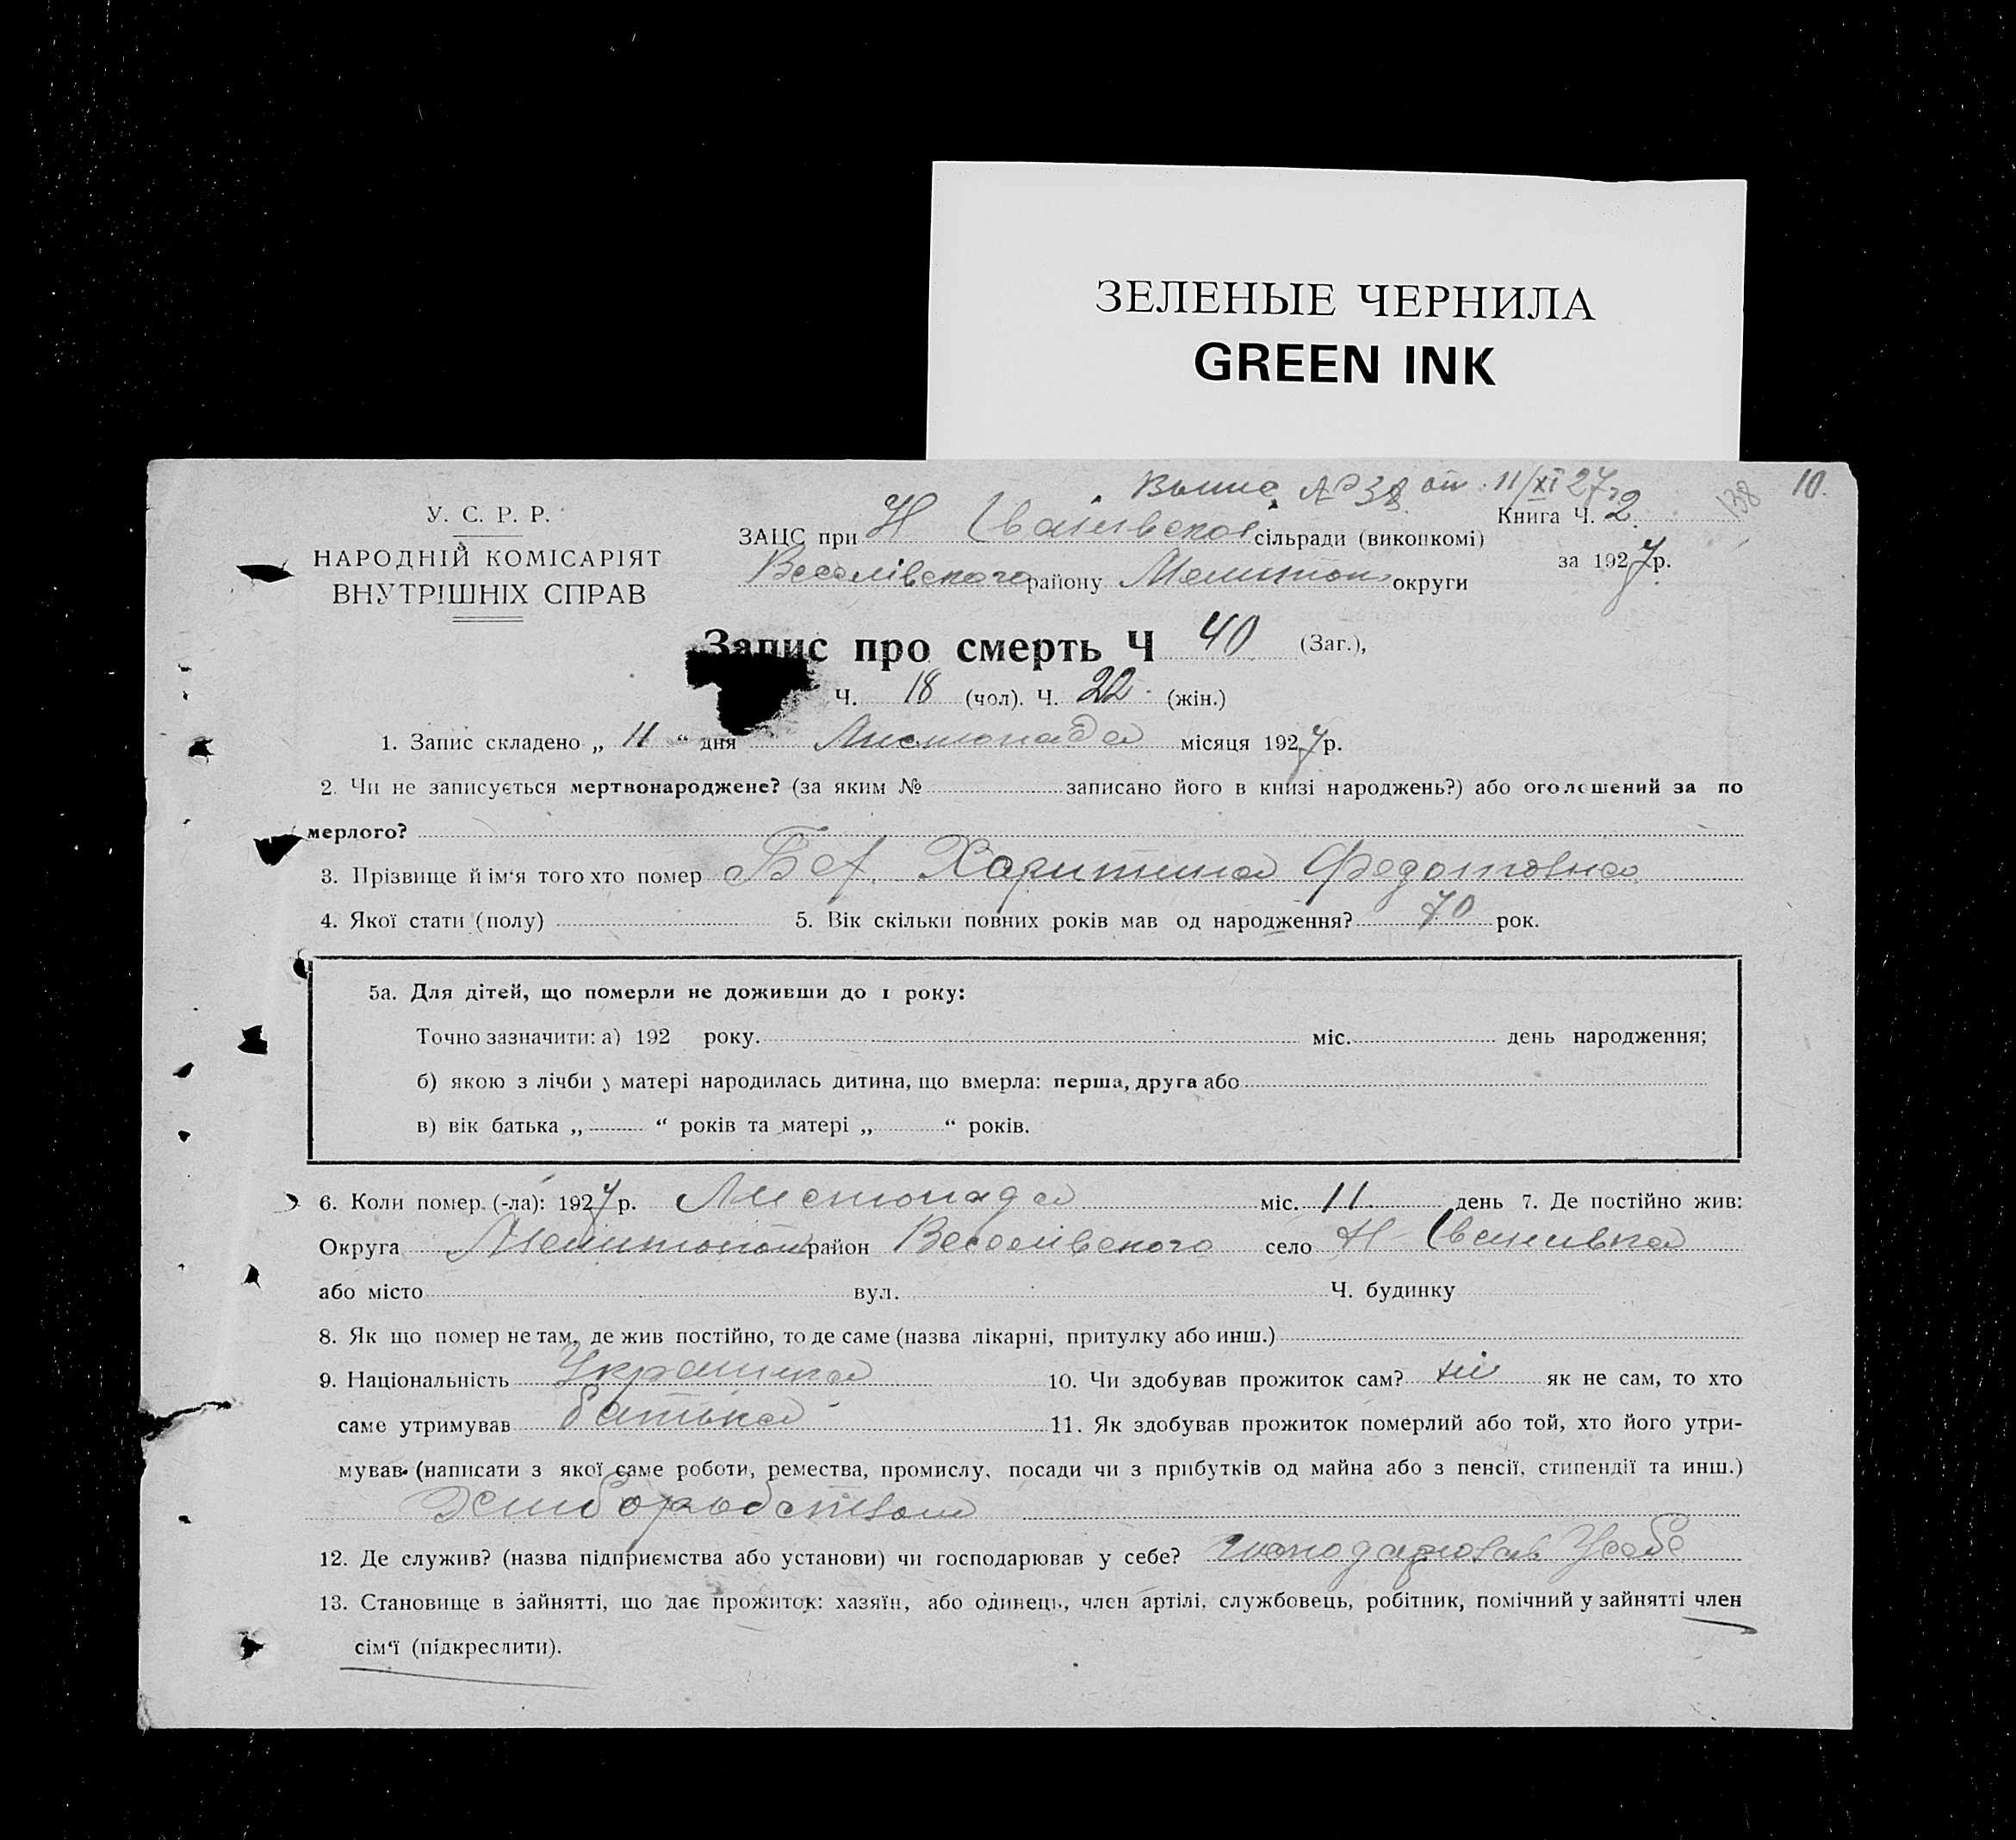 ЗЕЛЕНЫЕ ЧЕРНИЛА
GREEN INK
№ 38 от 11/XI 27 10.
138
У. С. Р. Р.
НАРОДНІЙ КОМІСАРІЯТ
ВНУТРІШНІХ СПРАВ
ЗАЦС при Н Іванівской сільради (виконкомі)
Веселівського району Мелитоп округи
Книга Ч. 2
за 1927 р.
Запис про смерть Ч 40 (Заг.),
Ч. 18 (чол). Ч. 22 (жін.)
1. Запис складено „ 11 “ дня Листопада місяця 1927 р.
2. Чи не записується мертвонароджене? (за яким № записано його в книзі народжень?) або оголошений за по
мерлого?
3. Прізвище й ім'я того хто помер Харитина Федотовна
4. Якої стати (полу) 5. Вік скільки повних років мав од народження? 70 рок.
5а. Для дітей, що померли не доживши до 1 року:
Точно зазначити: а) 192 року. міс. день народження;
б) якою з лічби у матері народилась дитина, що вмерла: перша, друга або
в) вік батька „ “ років та матері „ “ років.
6. Коли помер (-ла): 1927 р. Листопада міс. 11. день 7. Де постійно жив:
Округа район Веселівского село Н Іванивка
або місто вул. Ч. будинку
8. Як що помер не там, де жив постійно, то де саме (назва лікарні, притулку або инш.)
9. Національність Украинка 10. Чи здобував прожиток сам? ні як не сам, то хто
саме утримував батька 11. Як здобував прожиток померлий або той, хто його утри-
мував (написати з якої саме роботи, ремества, промислу, посади чи з прибутків од майна або з пенсії, стипендії та инш.)
Хлиборобством
12. Де служив? (назва підприємства або установи) чи господарював у себе? господарював у себе
13. Становище в зайнятті, що дає прожиток: хазяїн, або одинець, член артілі, службовець, робітник, помічний у зайнятті член
сім'ї (підкреслити).